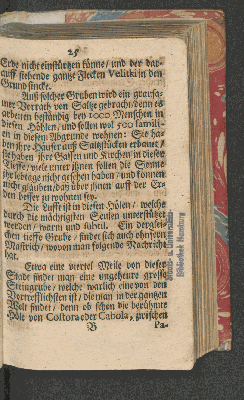 25
Erde nicht einstürtzen könne / und der dar-
auff stehende gantze Flecken Velitki in den
Grund sincke.
Auß solcher Gruben wird ein grausa-
mer Vorrath von Saltze gebracht / denn es
arbeiten beständig bey 1000 Menschen in
diesen Höhlen / und sollen wol 500 famili-
en in diesen Abgrunde wohnen: Sie ha-
ben ihre Häuser auß Saltzstücken erbauet /
sie haben ihre Gassen und Kirchen in dieser
Tieffe / viele unter ihnen sollen die Sonne
ihr lebtage nicht gesehen haben / und können
nicht glauben / daß über ihnen auff der Er-
den besser zu wohnen sey.
Die Lufft ist in diesen Hölen / welche
durch die mächtigsten Seulen unterstützet
werden / warm und Ein derglei-
chen tieffe Grube / findet sich auch ohnfern
Mastrich / wovon man folgende Nachricht
hat.
Etwa eine viertel Meile von dieser
Stadt findet man eine ungeheure grosse
Steingrube / welche warlich eine von den
Vortrefflichsten ist / die man in der gantzen
Welt findet / denn ob schon die berühmte
Höle von Costora oder Cabola, zwischen
B Pa-
Staats- u. Universitäts-
Bibliothek Hamburg